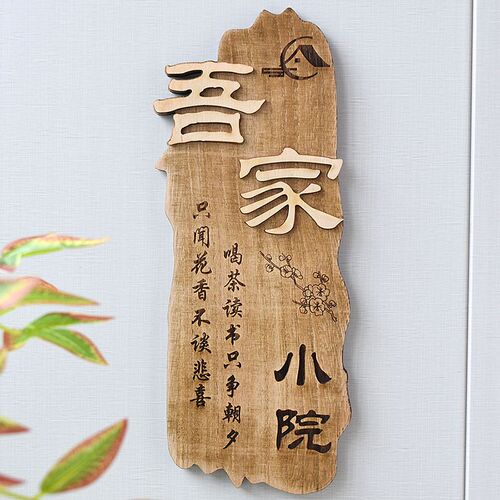 吾家
小院
喝茶读书只争朝夕
只闻花香不谈悲喜